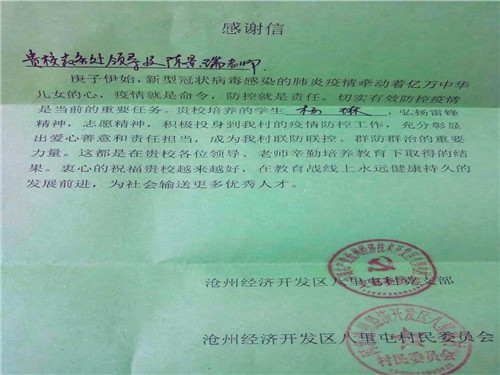 感谢信
贵校教务处领导及陈景瑞老师
庚子伊始，新型冠状病毒感染的肺炎疫情牵动着亿万中华
儿女的心，疫情就是命令，防控就是责任。切实有效防控疫情
是当前的重要任务。贵校培养的学生杨琳，弘扬雷锋
精神，志愿精神，积极投身到我村的疫情防控工作，充分彰显
出爱心善意和责任担当，成为我村联防联控、群防群治的重要
力量。这都是在贵校各位领导、老师辛勤培养教育下取得的结
果。衷心的祝福贵校越来越好，在教育战线上永远健康持久的
发展前进，为社会输送更多优秀人才。
沧州经济开发区八里屯村党支部
沧州经济开发区八里屯村民委员会
村民委员会